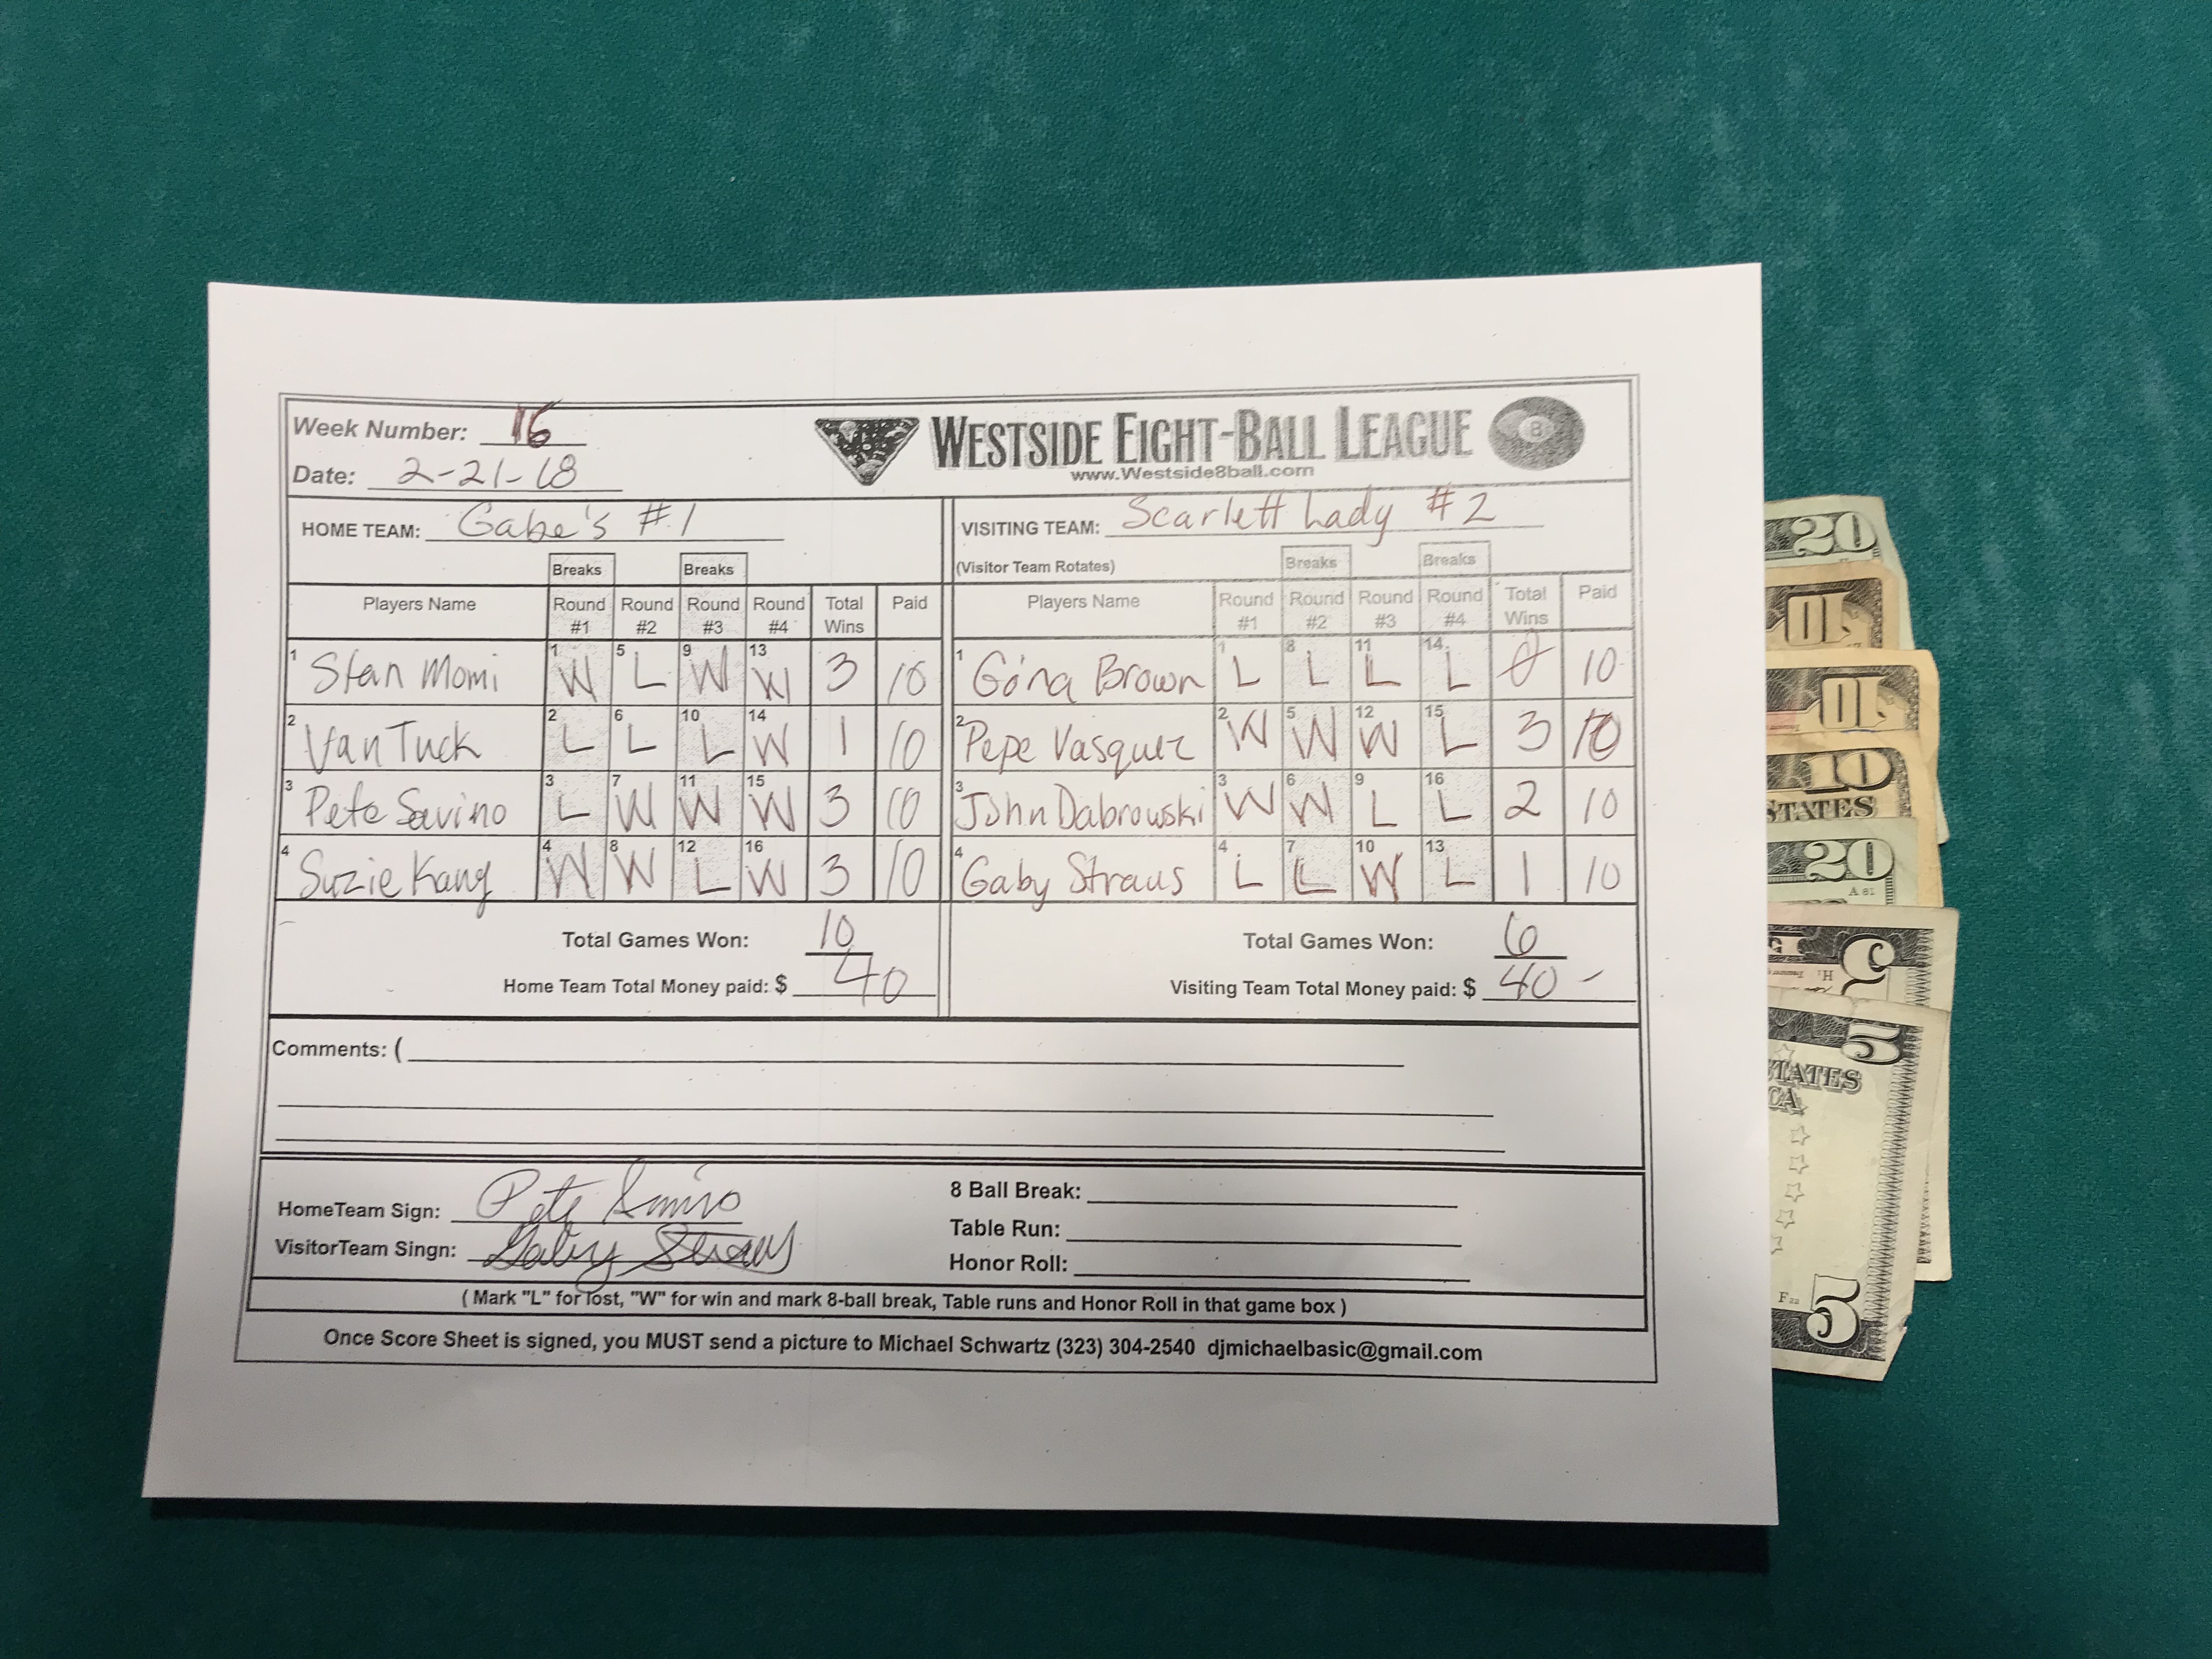 Week Number: 16
WESTSIDE EIGHT-BALL LEAGUE
8
www.Westside8ball.com
Date: 2-21-18
HOME TEAM: Gabe's #1
VISITING TEAM: Scarlett Lady #2
Breaks Breaks
(Visitor Team Rotates) Breaks Breaks
Players Name Round #1 Round #2 Round #3 Round #4 Total Wins Paid
Players Name Round #1 Round #2 Round #3 Round #4 Total Wins Paid
1 Stan Momi 1 W 5 L 9 W 13 W 3 10
1 Gina Brown 1 L 8 L 11 L 14 L 0 10
2 Van Tuck 2 L 6 L 10 L 14 W 1 10
2 Pepe Vasquez 2 W 5 W 12 W 15 L 3 10
3 Pete Savino 3 L 7 W 11 W 15 W 3 10
3 John Dabrowski 3 W 6 W 9 L 16 L 2 10
4 Suzie Kang 4 W 8 W 12 L 16 W 3 10
4 Gaby Straus 4 L 7 L 10 W 13 L 1 10
Total Games Won: 10
Total Games Won: 6
Home Team Total Money paid: $ 40
Visiting Team Total Money paid: $ 40 -
Comments: (
HomeTeam Sign: Pete Savino
VisitorTeam Singn: Gaby Straus
8 Ball Break:
Table Run:
Honor Roll:
( Mark "L" for lost, "W" for win and mark 8-ball break, Table runs and Honor Roll in that game box )
Once Score Sheet is signed, you MUST send a picture to Michael Schwartz (323) 304-2540 djmichaelbasic@gmail.com
20
10
10
10
STATES
20
5
5
TATES
CA
5